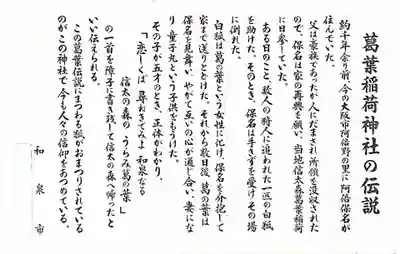 葛葉稲荷神社の伝説
約千年余り前、今の大阪市阿倍野の里に阿倍保名が
住んでいた。
父は豪族であったが人にだまされ所領を没収された
ので、保名は家の再興を願い、当地信太森葛葉稲荷
に日参していた。
ある日のこと、数人の狩人に追われた一匹の白狐
を助けた。そのとき、保名は手きずを受けその場
に倒れた。
白狐は葛の葉という女性に化け、保名を介抱して
家まで送りとどけた。それから数日後、葛の葉は
保名を見舞い、やがて互いの心が通じ合い、妻にな
り童子丸という子供をもうけた。
その子が五才のとき、正体がわかり、
「恋しくば 尋ねきてみよ 和泉なる
信太の森の うらみ葛の葉」
の一首を障子に書き残して信太の森へ帰ったと
いい伝えられる。
この葛葉伝説にまつわる狐がおまつりされている
のがこの神社で、今も人々の信仰をあつめている。
和泉市